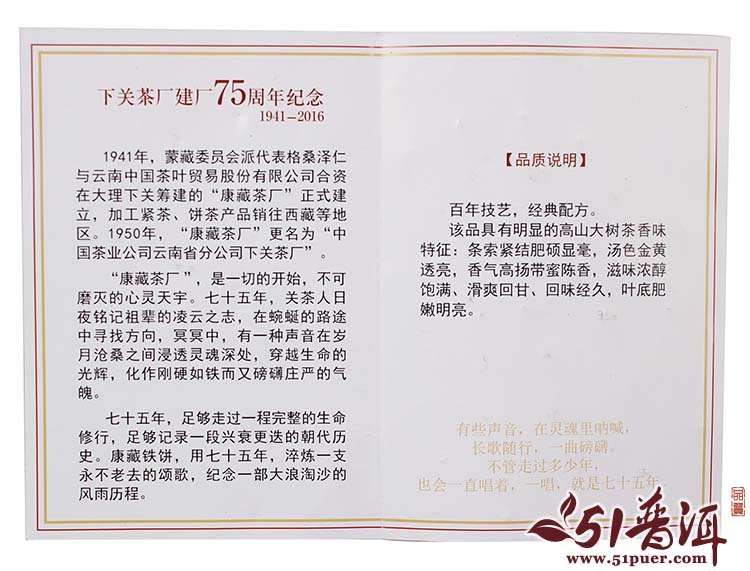 下关茶厂建厂75周年纪念
1941-2016
1941年，蒙藏委员会派代表格桑泽仁
与云南中国茶叶贸易股份有限公司合资
在大理下关筹建的“康藏茶厂”正式建
立，加工紧茶、饼茶产品销往西藏等地
区。1950年，“康藏茶厂”更名为“中
国茶业公司云南省分公司下关茶厂”。
“康藏茶厂”，是一切的开始，不可
磨灭的心灵天宇。七十五年，关茶人日
夜铭记祖辈的凌云之志，在蜿蜒的路途
中寻找方向，冥冥中，有一种声音在岁
月沧桑之间浸透灵魂深处，穿越生命的
光辉，化作刚硬如铁而又磅礴庄严的气
魄。
七十五年，足够走过一程完整的生命
修行，足够记录一段兴衰更迭的朝代历
史。康藏铁饼，用七十五年，淬炼一支
永不老去的颂歌，纪念一部大浪淘沙的
风雨历程。
【品质说明】
百年技艺，经典配方。
该品具有明显的高山大树茶香味
特征：条索紧结肥硕显毫，汤色金黄
透亮，香气高扬带蜜陈香，滋味浓醇
饱满、滑爽回甘、回味经久，叶底肥
嫩明亮。
有些声音，在灵魂里呐喊，
长歌随行，一曲磅礴。
不管走过多少年，
也会一直唱着，一唱、就是七十五年
51普洱
www.51puer.com